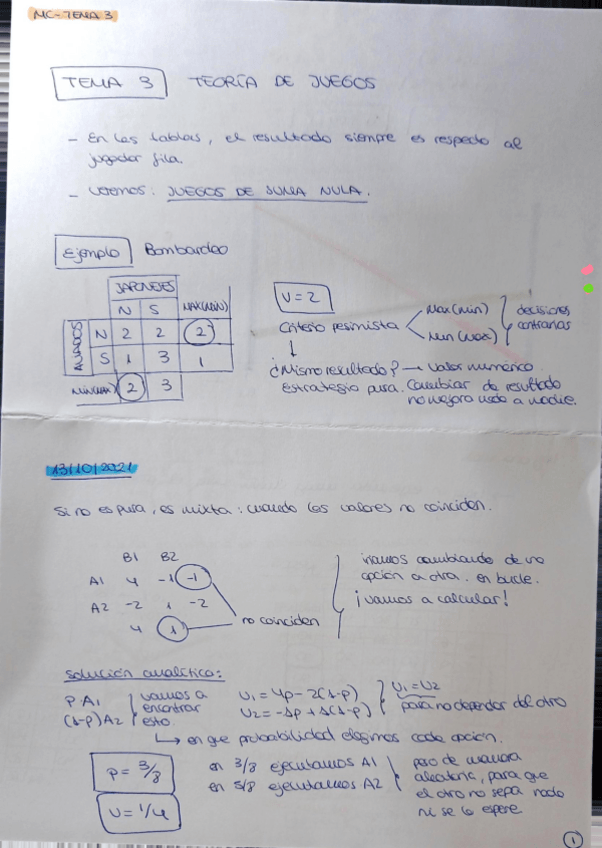 MC-TEMA 3
TEMA 3 TEORÍA DE JUEGOS
- En las tablas, el resultado siempre es respecto al
jugador fila.
- Veremos: JUEGOS DE SUMA NULA.
Ejemplo Bombardeo
JAPONESES
N S MAX(MIN)
ALIADOS N 2 2 2
S 1 3 1
MIN(MAX) 2 3
V=2
Criterio pesimista Max(min) decisiones
Min(Max) contrarias
¿Mismo resultado? → Valor numérico.
estrategia pura. Cambiar de resultado
no mejora nada a nadie.
13/10/2021
Si no es pura, es mixta: cuando los valores no coinciden.
B1 B2
A1 4 -1 -1
A2 -2 1 -2
4 1
no coinciden
iríamos cambiando de una
opción a otra. en bucle.
¡vamos a calcular!
solución analítica:
P·A1 vamos a
(1-p)A2 encontrar
esto.
V1=4p-2(1-p)
V2=-1p+1(1-p)
V1=V2
para no depender del otro
↳ en que probabilidad elegimos cada opción.
p=3/8
V=1/4
en 3/8 ejecutamos A1
en 5/8 ejecutamos A2
pero de manera
aleatoria, para que
el otro no sepa nada
ni se lo espere
1